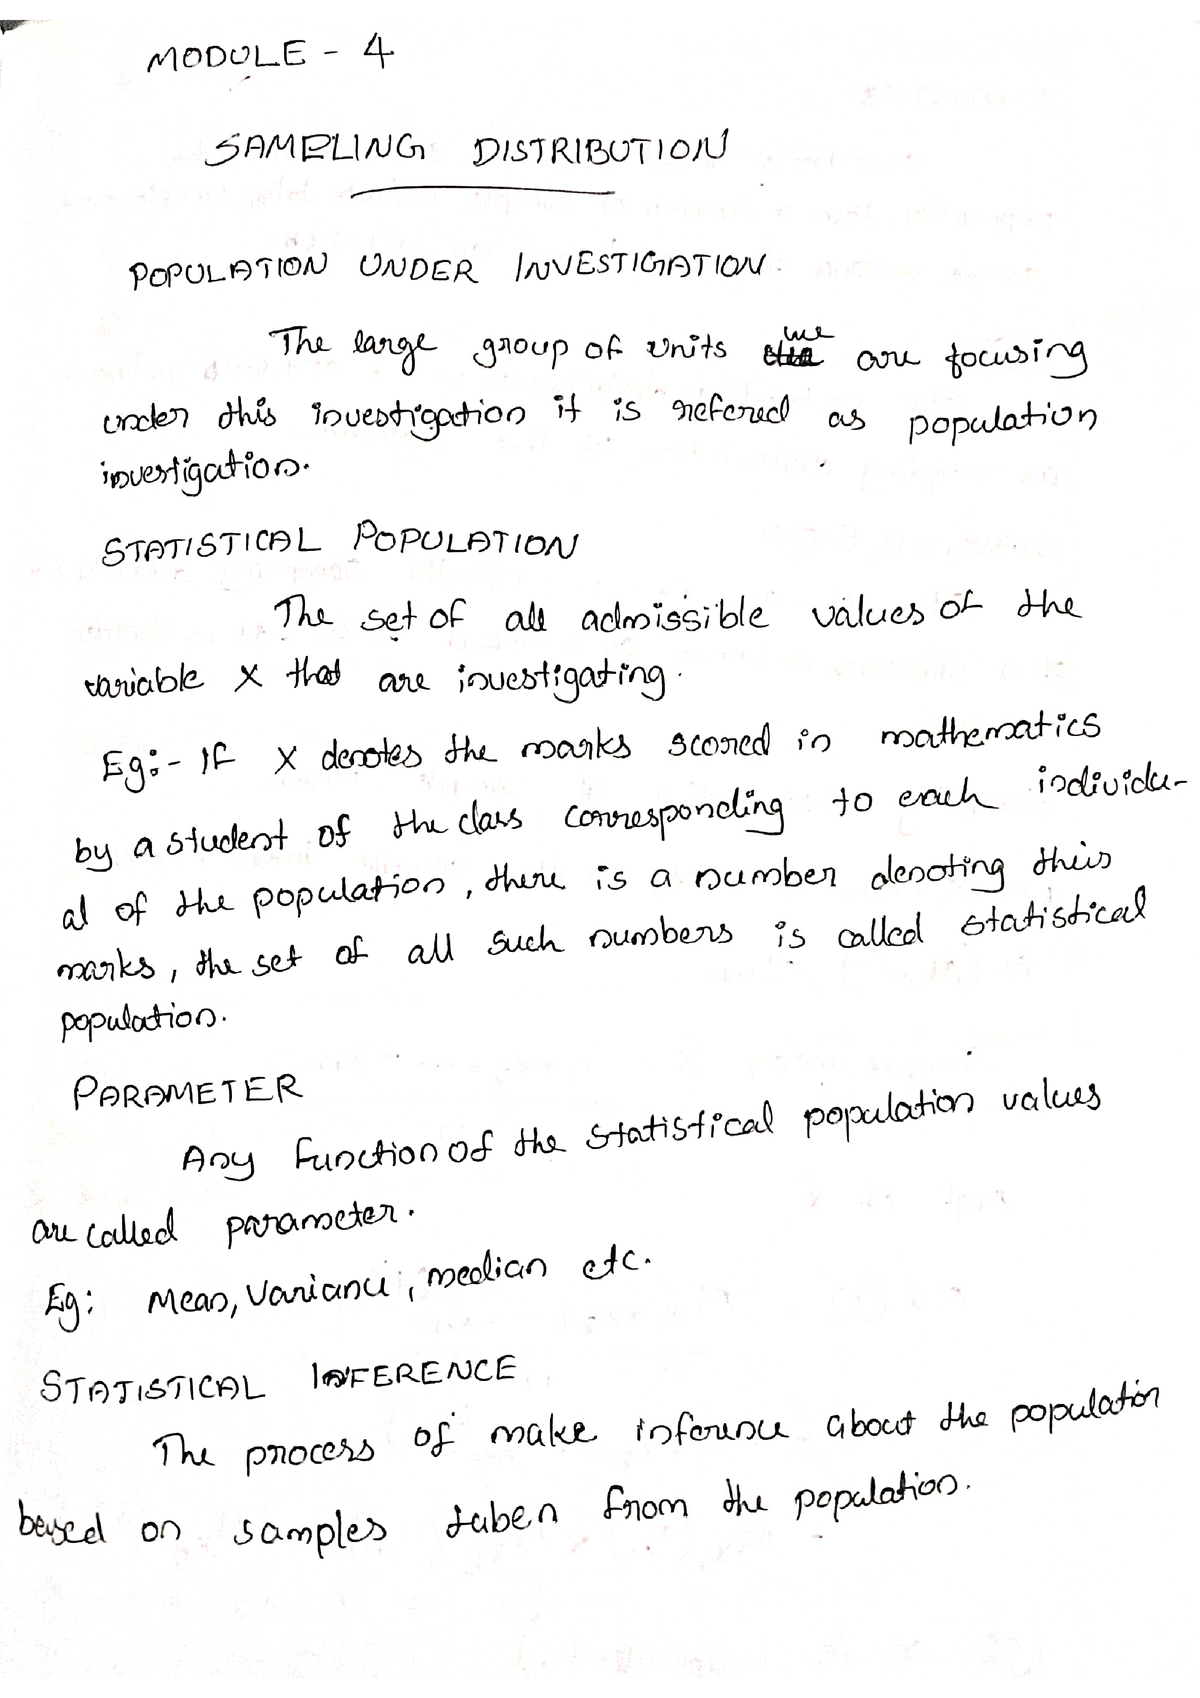 MODULE - 4
SAMPLING DISTRIBUTION
POPULATION UNDER INVESTIGATION.
The large group of units we are focusing
under this investigation it is refered as population
investigation.
STATISTICAL POPULATION
The set of all admissible values of the
variable X that are investigating.
Eg:- If X denotes the marks scored in mathematics
by a student of the class corresponding to each individu-
al of the population, there is a number denoting this
marks, the set of all such numbers is called statistical
population.
PARAMETER
Any function of the statistical population values
are called parameter.
Eg: Mean, Variance, median etc.
STATISTICAL INFERENCE
The process of make inference about the population
based on samples taken from the population.